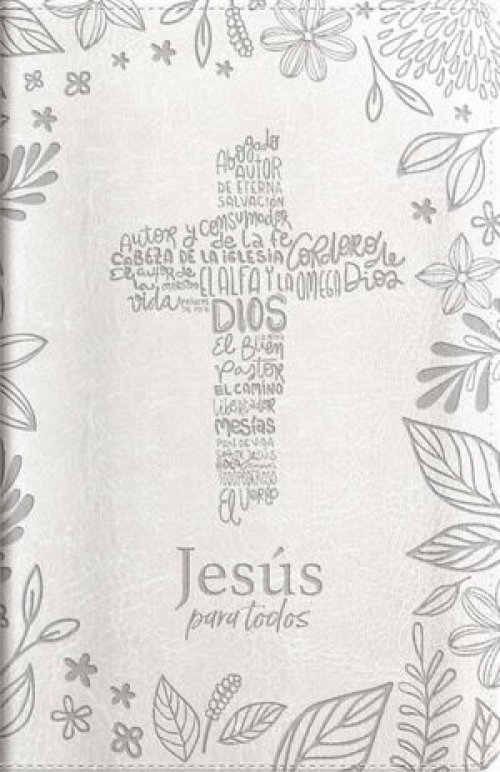 Abogado
AUTOR
DE ETERNA
SALVACIÓN
Autor y consumador
de la fe
CABEZA DE LA IGLESIA
Cordero de Dios
El autor de la vida
maestro
EL ALFA Y LA OMEGA
DIOS
El Buen
Pastor
EL CAMINO
Libertador
Mesías
PAN DE VIDA
JESÚS
ROCA
TODOPODEROSO
El Verbo
Jesús
para todos